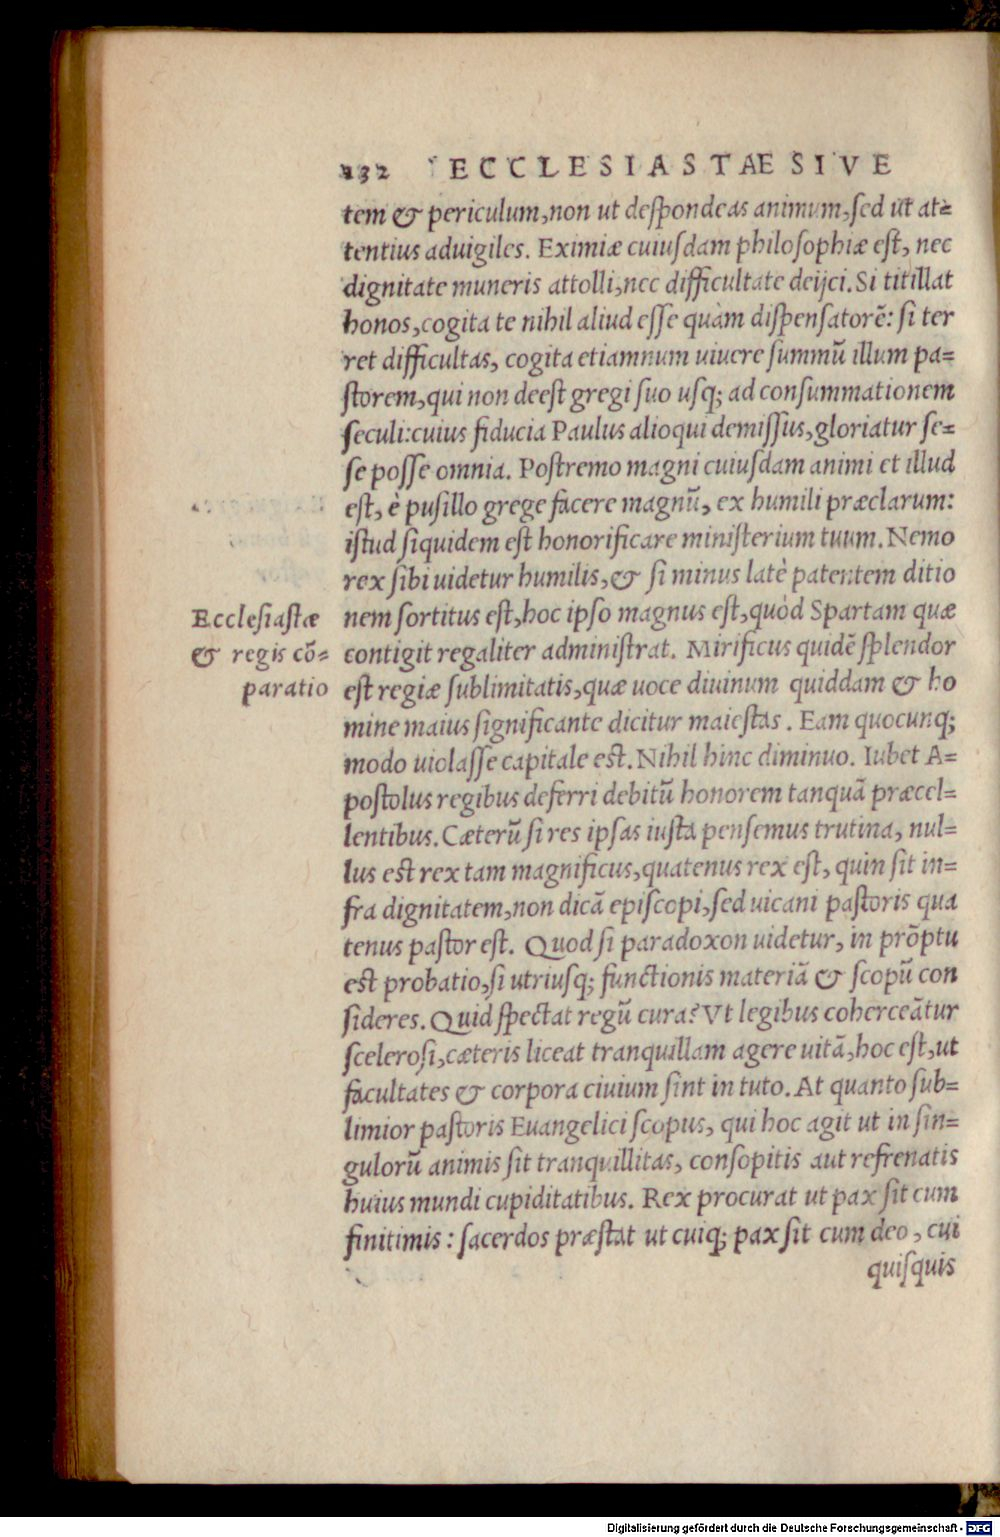 232 ECCLESIASTAE SIVE
tem & periculum, non ut despondeas animum, sed ut at=
tentius aduigiles. Eximiæ cuiusdam philosophiæ est, nec
dignitate muneris attolli, nec difficultate deijci. Si titillat
honos, cogita te nihil aliud esse quàm dispensatorē: si ter
ret difficultas, cogita etiamnum uiuere summū illum pa=
storem, qui non deest gregi suo usq; ad consummationem
seculi: cuius fiducia Paulus alioqui demissus, gloriatur se=
se posse omnia. Postremo magni cuiusdam animi et illud
est, è pusillo grege facere magnū, ex humili præclarum:
istud siquidem est honorificare ministerium tuum. Nemo
rex sibi uidetur humilis, & si minus latè patentem ditio
Ecclesiastæ
& regis cō=
paratio
nem sortitus est, hoc ipso magnus est, quòd Spartam quæ
contigit regaliter administrat. Mirificus quidē splendor
est regiæ sublimitatis, quæ uoce diuinum quiddam & ho
mine maius significante dicitur maiestas. Eam quocunq;
modo uiolasse capitale est. Nihil hinc diminuo. Iubet A=
postolus regibus deferri debitū honorem tanquā præcel=
lentibus. Cæterū si res ipsas iusta pensemus trutina, nul=
lus est rex tam magnificus, quatenus rex est, quin sit in=
fra dignitatem, non dicā episcopi, sed uicani pastoris qua
tenus pastor est. Quod si paradoxon uidetur, in prōptu
est probatio, si utriusq; functionis materiā & scopū con
sideres. Quid spectat regū cura? Vt legibus coherceātur
scelerosi, cæteris liceat tranquillam agere uitā, hoc est, ut
facultates & corpora ciuium sint in tuto. At quanto sub=
limior pastoris Euangelici scopus, qui hoc agit ut in sin=
gulorū animis sit tranquillitas, consopitis aut refrenatis
huius mundi cupiditatibus. Rex procurat ut pax sit cum
finitimis: sacerdos præstat ut cuiq; pax sit cum deo, cui
quisquis
Digitalisierung gefördert durch die Deutsche Forschungsgemeinschaft - DFG